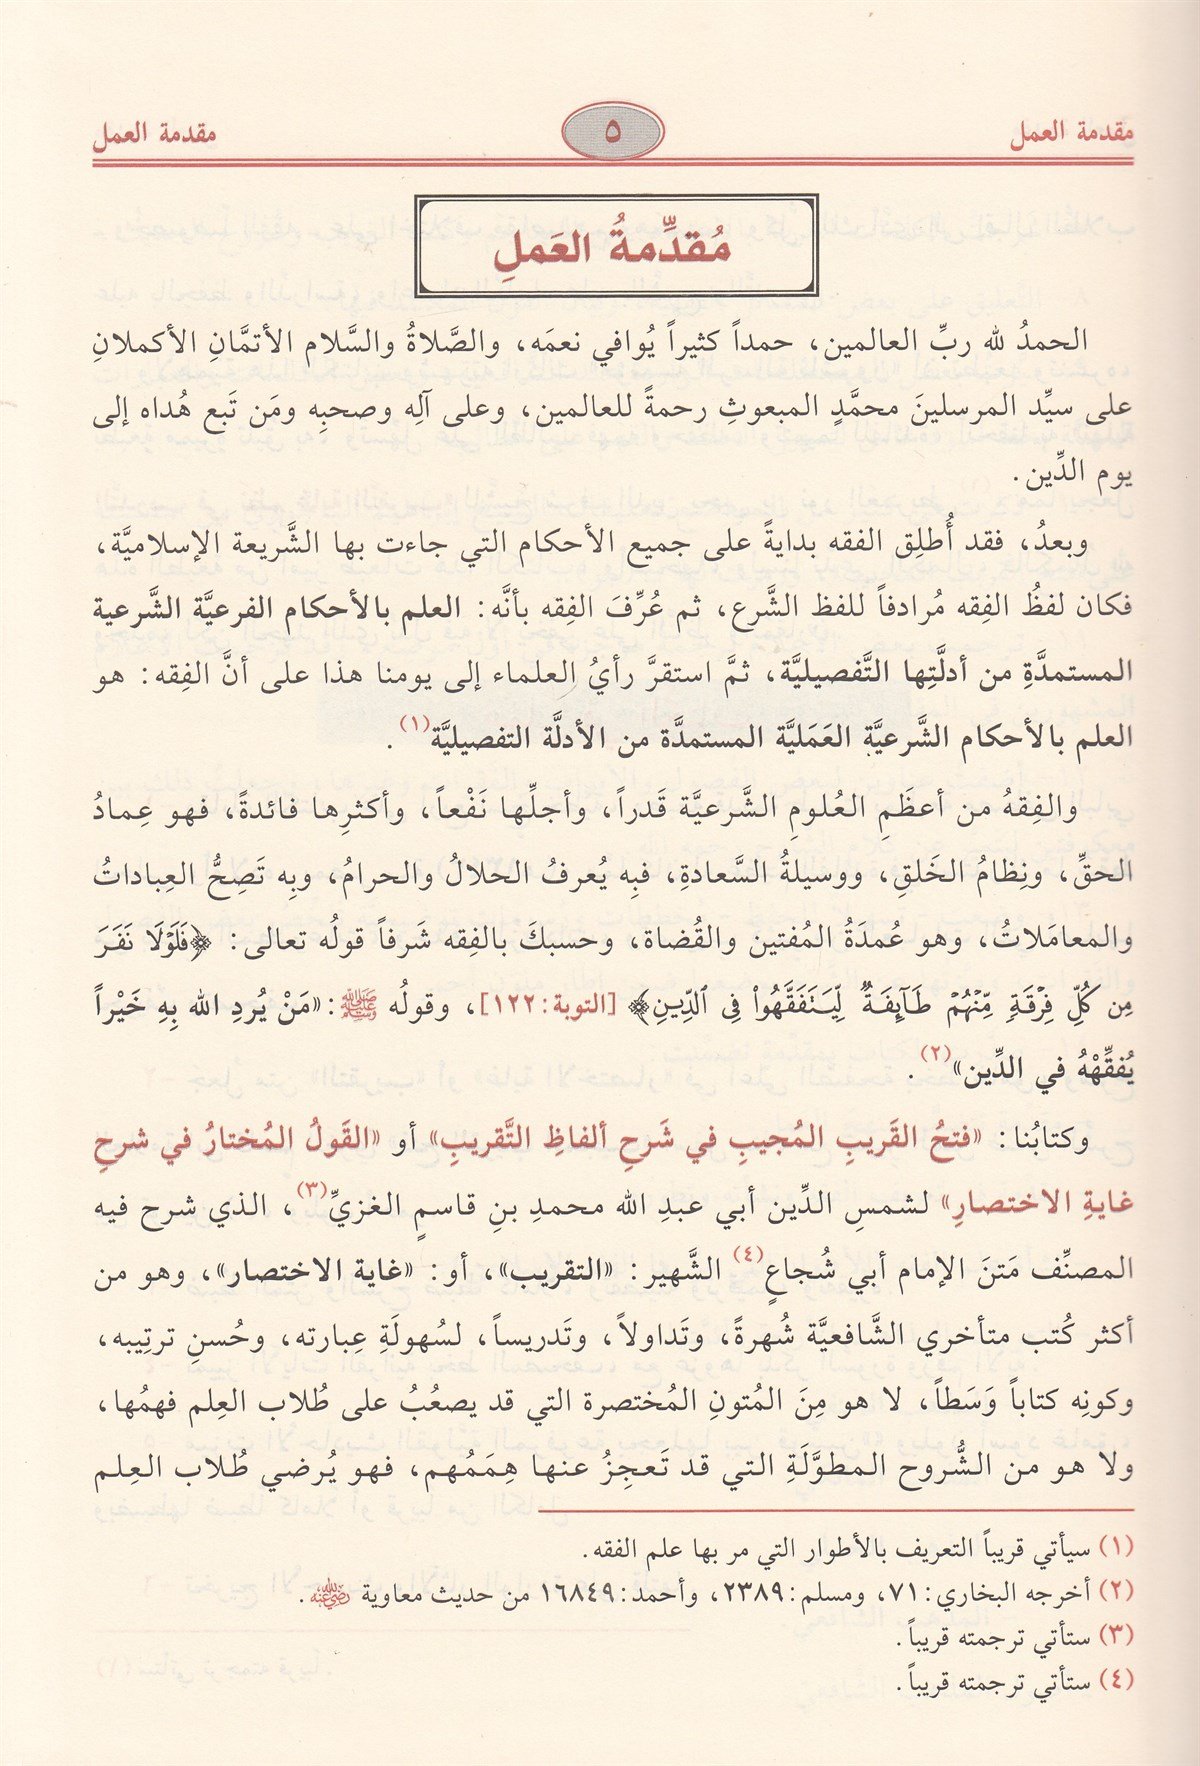 مقدمة العمل ٥ مقدمة العمل
مُقدِّمةُ العَملِ
الحمدُ لله ربِّ العالمين، حمداً كثيراً يُوافي نعمَه، والصَّلاةُ والسَّلام الأتمَّانِ الأكملانِ
على سيِّد المرسلينَ محمَّدٍ المبعوثِ رحمةً للعالمين، وعلى آلِهِ وصحبِه ومَن تَبع هُداه إلى
يوم الدِّين.
وبعدُ، فقد أُطلِق الفقه بدايةً على جميع الأحكام التي جاءت بها الشَّريعة الإسلاميَّة،
فكان لفظُ الفِقه مُرادفاً للفظ الشَّرع، ثم عُرِّفَ الفِقه بأنَّه: العلم بالأحكام الفرعيَّة الشَّرعية
المستمدَّةِ من أدلَّتِها التَّفصيليَّة، ثمَّ استقرَّ رأيُ العلماء إلى يومنا هذا على أنَّ الفِقه: هو
العلم بالأحكام الشَّرعيَّةِ العَمَليَّة المستمدَّة من الأدلَّة التفصيليَّة(١).
والفِقهُ من أعظَمِ العُلومِ الشَّرعيَّة قَدراً، وأجلِّها نَفْعاً، وأكثرِها فائدةً، فهو عِمادُ
الحقِّ، ونِظامُ الخَلقِ، ووسيلةُ السَّعادةِ، فبِه يُعرفُ الحلالُ والحرامُ، وبِه تَصِحُّ العِباداتُ
والمعامَلاتُ، وهو عُمدَةُ المُفتين والقُضاة، وحسبكَ بالفِقه شَرفاً قولُه تعالى: ﴿فَلَوْلَا نَفَرَ
مِن كُلِّ فِرْقَةٍ مِّنْهُمْ طَآئِفَةٌ لِّيَتَفَقَّهُوا۟ فِى ٱلدِّينِ﴾ [التوبة: ١٢٢]، وقولُه ﷺ: «مَنْ يُردِ الله بِهِ خَيْراً
يُفقِّهْهُ في الدِّين»(٢).
وكتابُنا: «فتحُ القَريبِ المُجيبِ في شَرحِ ألفاظِ التَّقريبِ» أو «القَولُ المُختارُ في شرحِ
غايةِ الاختصارِ» لشمسِ الدِّين أبي عبدِ الله محمدِ بنِ قاسمٍ الغزيِّ(٣)، الذي شرح فيه
المصنِّف مَتنَ الإمام أبي شُجاعٍ(٤) الشَّهير: «التقريب»، أو: «غاية الاختصار»، وهو من
أكثر كُتب متأخري الشَّافعيَّة شُهرةً، وتَداولاً، وتَدريساً، لسُهولَةِ عِبارته، وحُسنِ ترتِيبه،
وكونِه كتاباً وَسَطاً، لا هو مِنَ المُتونِ المُختصرة التي قد يصعُبُ على طُلاب العِلم فهمُها،
ولا هو من الشُّروح المطوَّلَةِ التي قد تَعجِزُ عنها هِمَمُهم، فهو يُرضي طُلاب العِلم
(١) سيأتي قريباً التعريف بالأطوار التي مر بها علم الفقه.
(٢) أخرجه البخاري: ٧١، ومسلم: ٢٣٨٩، وأحمد: ١٦٨٤٩ من حديث معاوية رضي الله عنه.
(٣) ستأتي ترجمته قريباً.
(٤) ستأتي ترجمته قريباً.